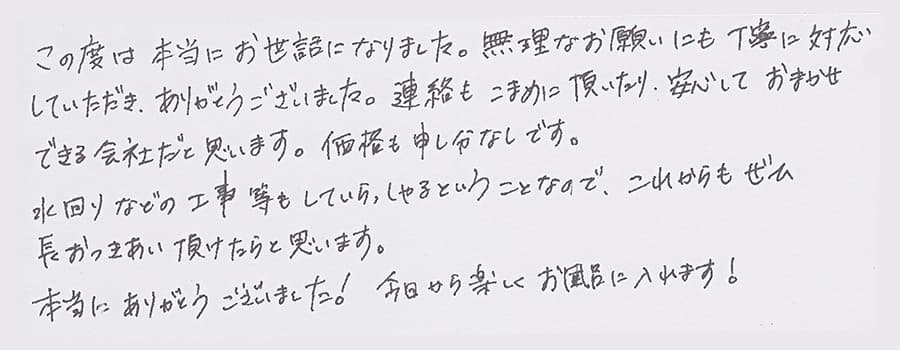 この度は本当にお世話になりました。無理なお願いにも丁寧に対応
していただき、ありがとうございました。連絡もこまめに頂いたり、安心しておまかせ
できる会社だと思います。価格も申し分なしです。
水回りなどの工事等もしていらっしゃるということなので、これからもぜひ
長おつきあい頂けたらと思います。
本当にありがとうございました! 今日から楽しくお風呂に入れます!